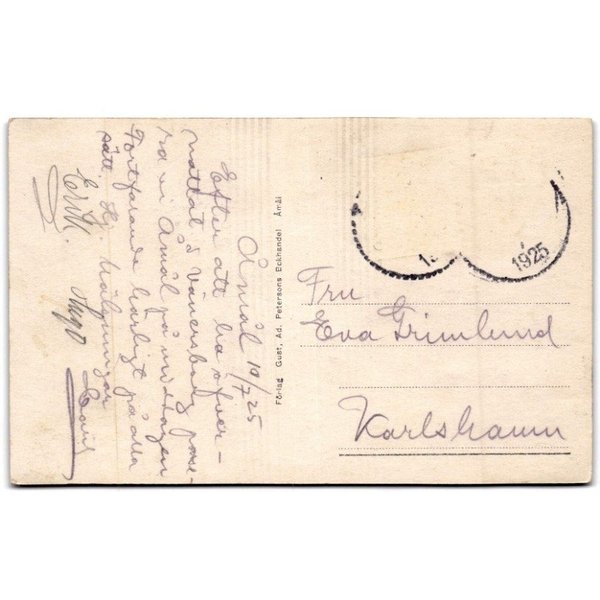 Åmål 10/7 25
Efter att ha öfver-
nattat i Vänersborg passe-
ra vi Åmål på middagen
Fortfarande härligt på alla
sätt. Hj. hälsningar
Erik. Hugo
Förlag Gust. Ad. Petersons Eckhandel Åmål
1925
Fru
Eva Grimlund
Karlshamn